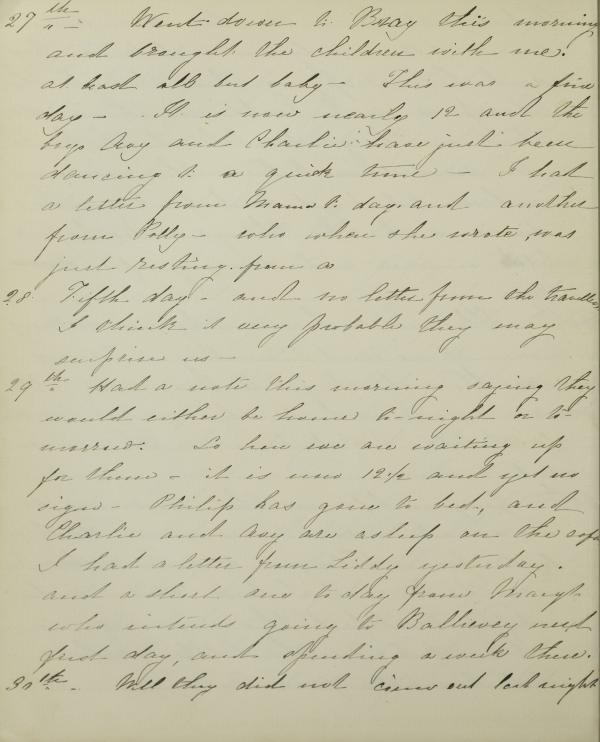 27th Went down to Bray this morning
and brought the children with me.
at least all but baby - This was a fine
day - It is now nearly 12 and the
boys Avy and Charlie have just been
dancing to a quick tune - I had
a letter from Mama to day and another
from Polly - who when she wrote, was
just resting from a
28 Fifth day - and no letter from the travellers
I think it very probable they may
surprise us -
29th Had a note this morning saying they
would either be home to-night or to-
morrow. So here we are waiting up
for them - it is now 12½ and yet no
sign - Philip has gone to bed, and
Charlie and Avy are asleep on the sofa
I had a letter from Liddy yesterday.
and a short one to day from
who intends going to Ballievey next
first day, and spending a week there.
30th - Well they did not come out last night